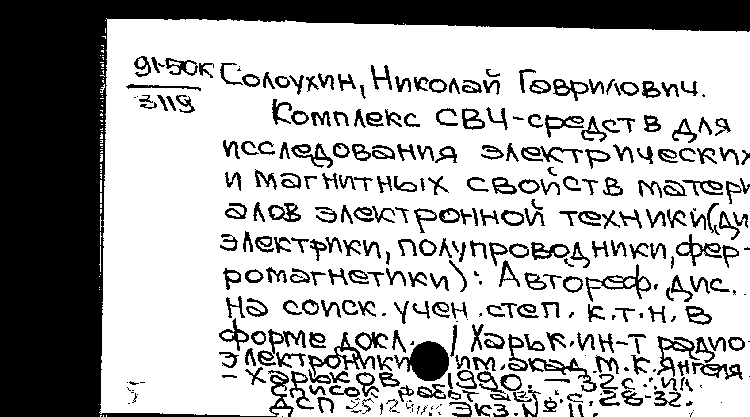 91-50К Солоухин, Николай Гаврилович.
3119
Комплекс СВЧ-средств для
исследования электрических
и магнитных свойств матери
алов электронной техники (ди
электрики, полупроводники, фер-
ромагнетики): Автореф. дис.
на соиск. учен. степ. к.т.н. в
форме докл. / Харьк. ин-т радио
электроники им. акад. М.К. Янгеля.
- Харьков 1990. - 32 с.: ил.
Список работ авт.: с. 28-32.
5 ДСП Экз. № 11.